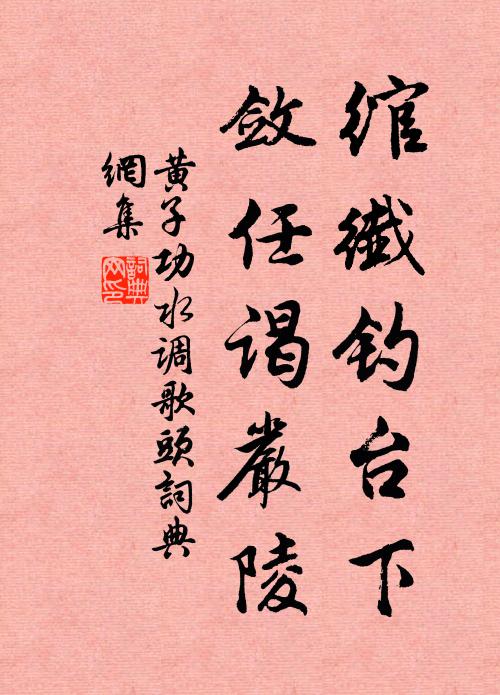 綰纖钓台下
敛任谒嚴陵
黄子功水调歌頭詞典
網集
詞典
网印